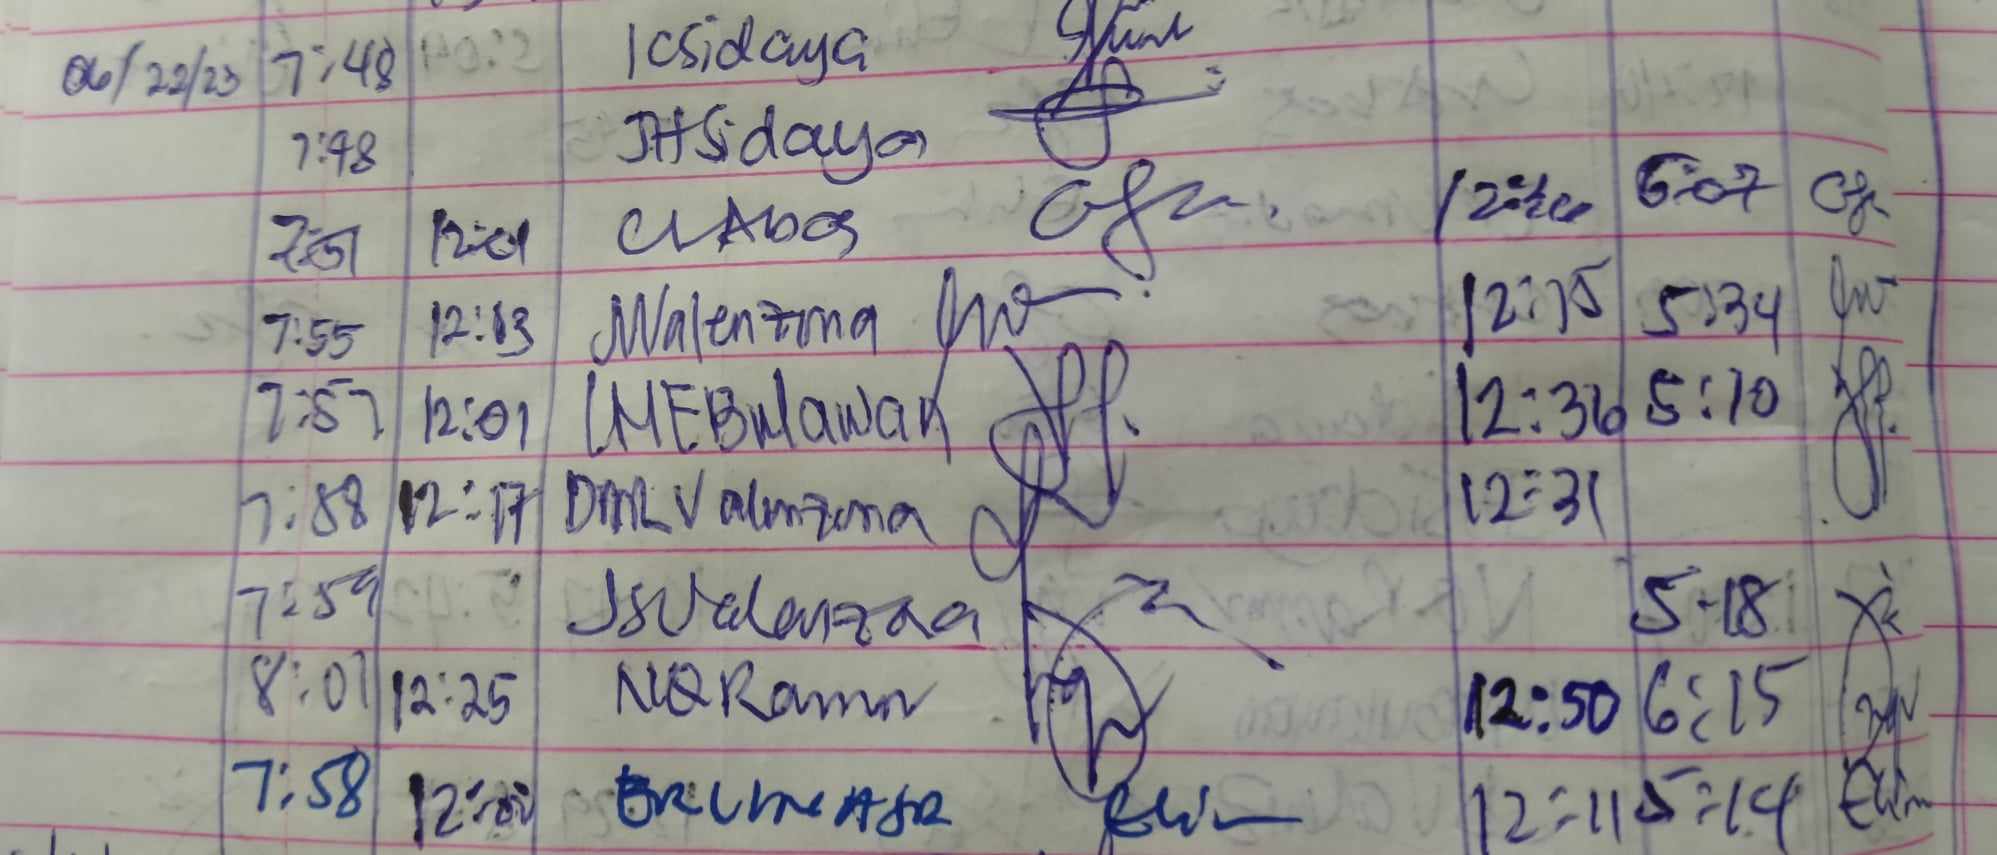 06/22/23 7:48 ICSidaya
7:48 JHSidaya
7:51 12:01 CLAbos 5:07
7:55 12:13 JValenzona 12:15 5:34
7:57 12:01 LMEBulawan 12:36 5:10
7:58 12:17 DMLValenzona 12:31
7:59 JSValenzona 5:18
8:01 12:25 NQRamir 12:50 6:15
7:58 12:11 5:14